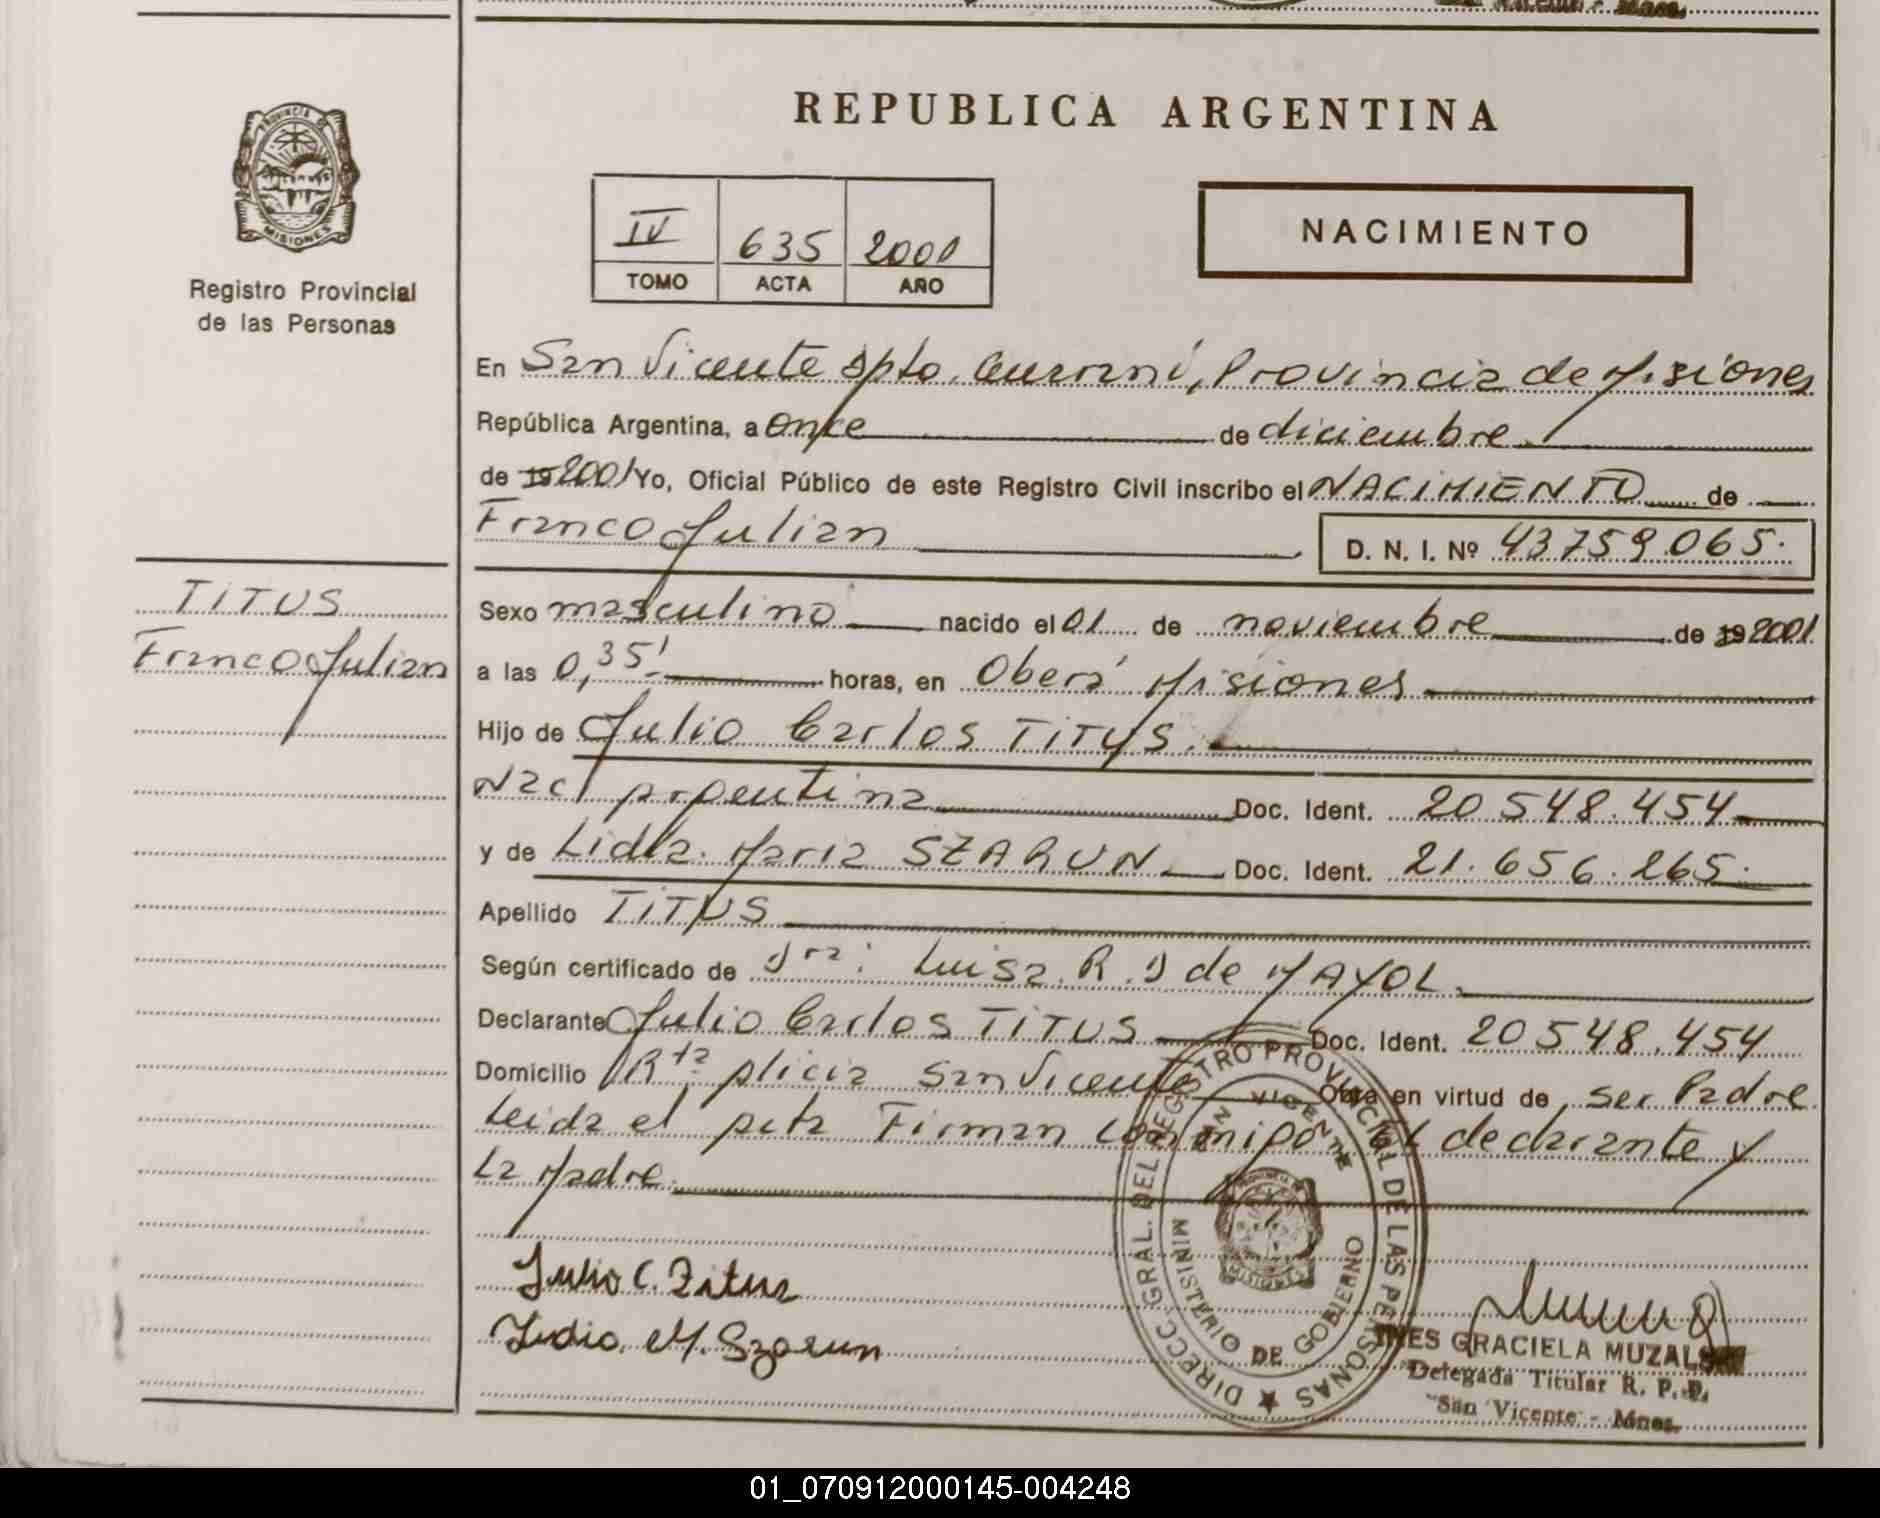 REPUBLICA ARGENTINA
PROVINCIA DE
MISIONES
Registro Provincial
de las Personas
IV 635 2001
TOMO ACTA AÑO
NACIMIENTO
En San Vicente Dpto. Guaraní, Provincia de Misiones
República Argentina, a once de diciembre
de 19 2001 Yo, Oficial Público de este Registro Civil inscribo el NACIMIENTO de
Franco Julian D. N. I. Nº 43759.065.
TITUS
Franco Julian
Sexo masculino nacido el 01 de noviembre de 19 2001
a las 0,35' horas, en Oberá Misiones
Hijo de Julio Carlos TITUS.
Nac. Argentina Doc. Ident. 20 548.454
y de Lidia Maria SZARUN Doc. Ident. 21.656.265.
Apellido TITUS
Según certificado de Dra: Luisa. R. D de MAYOL.
Declarante Julio Carlos TITUS Doc. Ident. 20548.454
Domicilio Rta: Alicia San Vicente Obra en virtud de ser Padre
Leida el acta Firman conmigo el declarante y
La Madre.
Julio C. Titus
Lidia. M. Szarun
DIRECC. GRAL. DEL REGISTRO PROVINCIAL DE LAS PERSONAS
SAN VICENTE
MINISTERIO DE GOBIERNO
MISIONES
INES GRACIELA
Delegada Titular R. P. P.
San Vicente - Mnes.
01_070912000145-004248